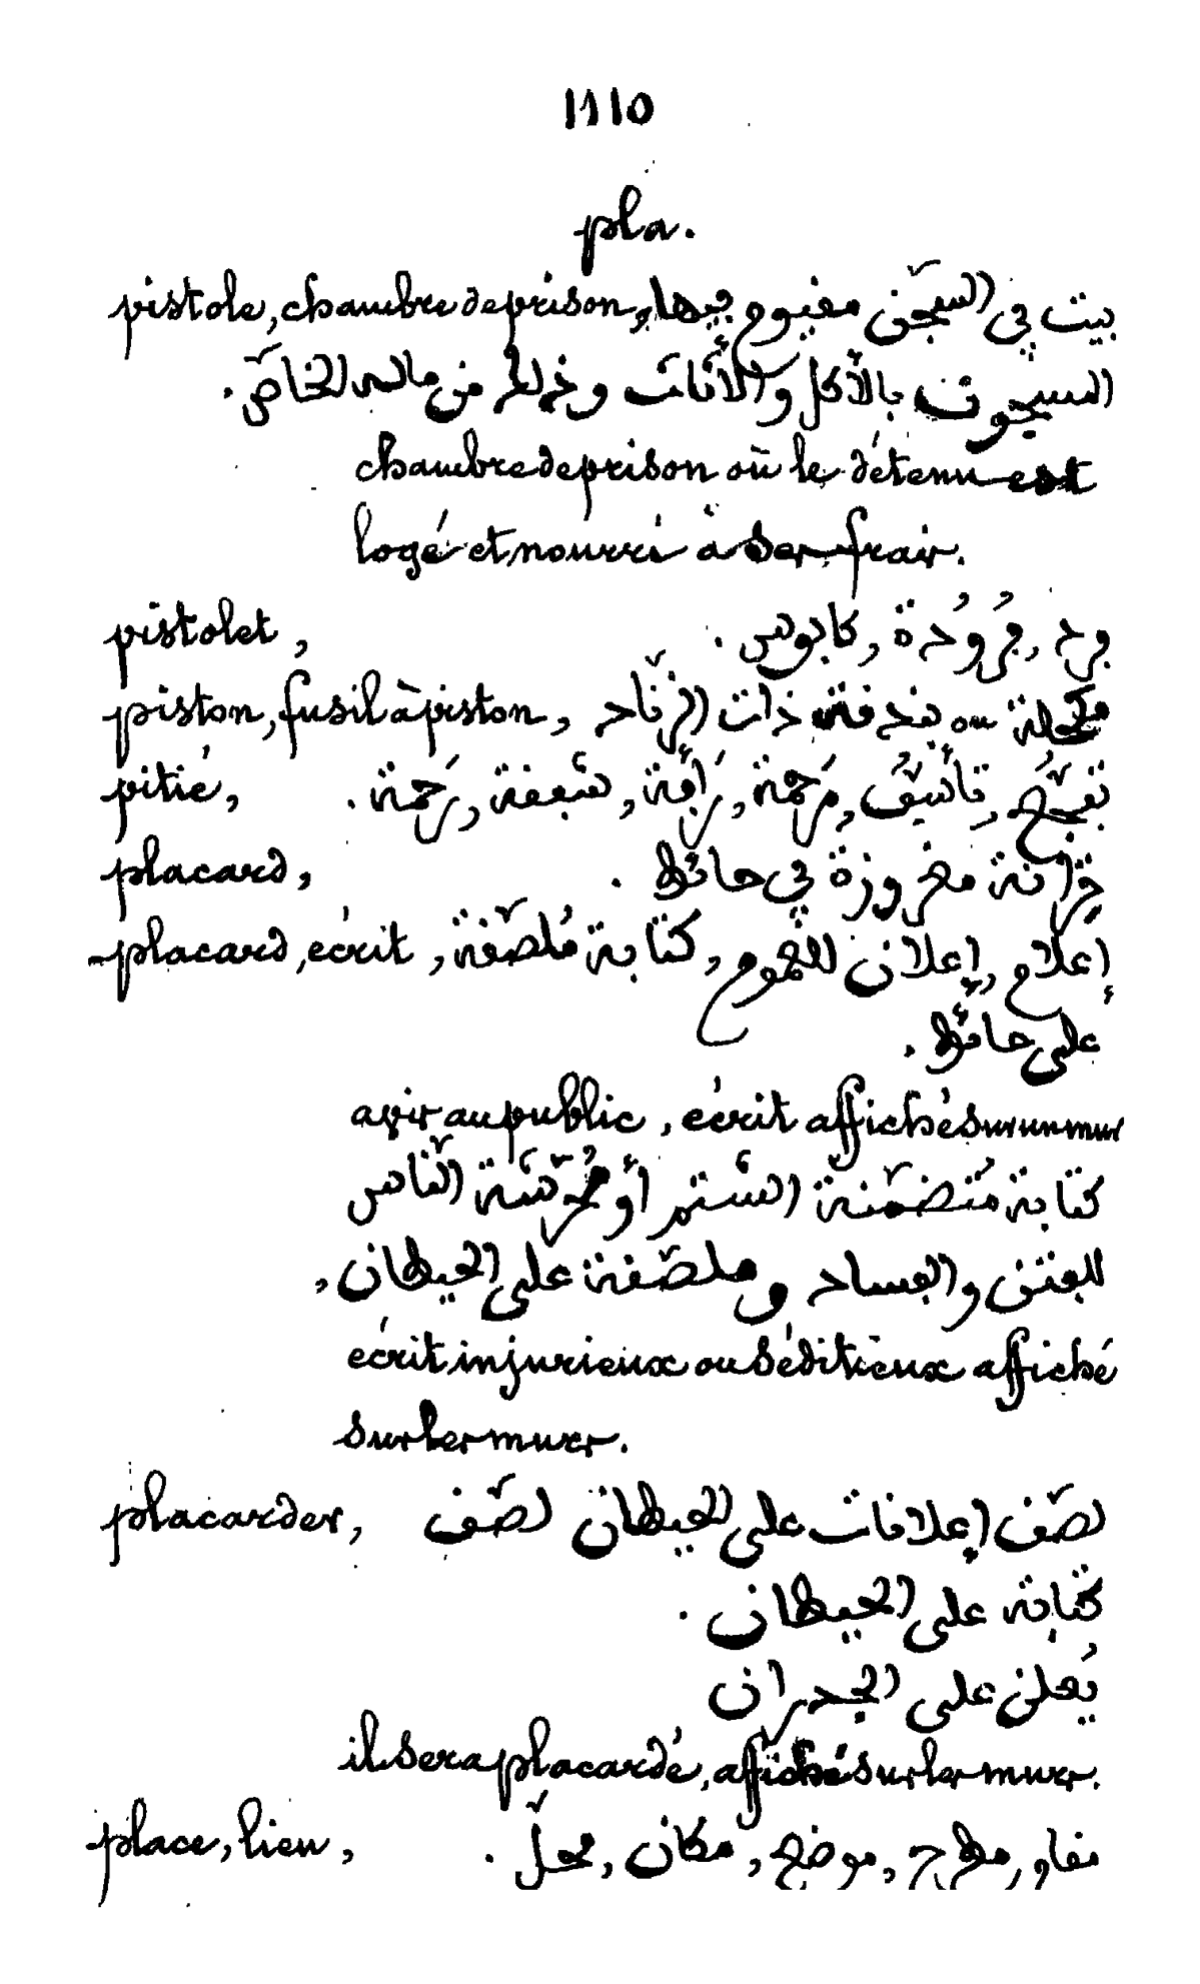 1110
pla.
pistole, chambre de prison, بيت في السّجن مقيوم فيها
المسجون بالأكل والأثاث وذلك من ماله الخاصّ.
chambre de prison où le détenu est
logé et nourri à ses frais.
pistolet, فرد, فُرُودَة, كابوس.
piston, fusil à piston, مكحلة ou بندقة ذات الزّناد
pitié, تأسّف, مَرحمة, رَأفة, شفقة, رَحمة.
placard, خِزانة مخروزة في حائط.
placard, écrit, إعلام, إعلان للعموم, كتابة مُلصّقة
على حائط.
avis au public, écrit affiché sur un mur
كتابة مُتضمّنة الشّتم أو مُحرّشة النّاس
للفتن والفساد وملصّقة على الحيطان,
écrit injurieux ou séditieux affiché
sur les murs.
placarder, لصّق إعلانات على الحيطان لصّق
كتابة على الحيطان.
يُعلن على الجدران
il sera placardé, affiché sur les murs.
place, lieu, مطرح, موضع, مكان, محلّ.